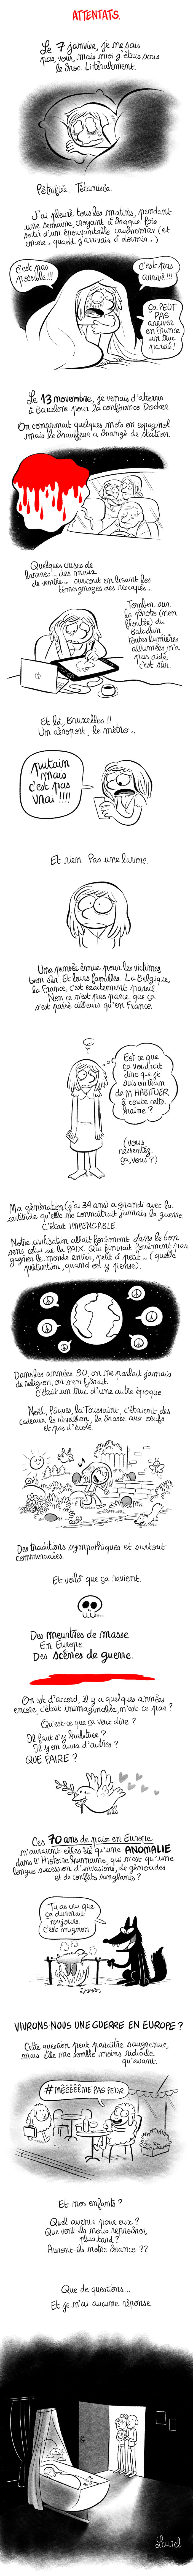 ATTENTATS.
Le 7 janvier, je ne sais
pas vous, mais moi j'étais sous
le choc. Littéralement.
Pétrifiée. Tétanisée.
J'ai pleuré tous les matins, pendant
une semaine, croyant à chaque fois
sortir d'un épouvantable cauchemar (et
encore... quand j'arrivais à dormir...)
c'est pas
possible!!!
C'est pas
arrivé!!!
ça PEUT
PAS
arriver
en France
un truc
pareil!
Le 13 novembre, je venais d'atterrir
à Barcelone pour la conférence Docker.
On comprenait quelques mots en espagnol
mais le chauffeur a changé de station.
Quelques crises de
larmes... des maux
de ventre... surtout en lisant les
témoignages des rescapés...
Tomber sur
la photo (non
floutée) du
Bataclan,
toutes lumières
allumées n'a
pas aidé,
c'est sûr.
Et là, Bruxelles!!
Un aéroport, le métro...
putain
mais
c'est pas
vrai!!!!
Et rien. Pas une larme.
Une pensée émue pour les victimes,
bien sûr. Et leurs familles. La Belgique,
la France, c'est exactement pareil.
Non ce n'est pas parce que ça
s'est passé ailleurs qu'en France.
Est-ce que
ça voudrait
dire que je
suis en train
de M'HABITUER
à toute cette
haine?
(vous
ressentez
ça, vous?)
Ma génération (j'ai 34 ans) a grandi avec la
certitude qu'elle ne connaîtrait jamais la guerre.
C'était IMPENSABLE.
Notre civilisation allait forcément dans le bon
sens, celui de la PAIX. Qui finirait forcément par
gagner le monde entier, petit à petit... (quelle
prétention, quand on y pense).
Dans les années 90, on ne parlait jamais
de religion, on s'en fichait.
C'était un truc d'une autre époque.
Noël, Pâques, la Toussaint, c'étaient des
cadeaux, le réveillon, la chasse aux oeufs
et pas d'école.
Des traditions sympathiques et surtout
commerciales.
Et voilà que ça revient.
Des meurtres de masse.
En Europe.
Des scènes de guerre.
On est d'accord, il y a quelques années
encore, c'était inimaginable, n'est-ce pas?
Qu'est-ce que ça veut dire?
Il faut s'y habituer?
Il y en aura d'autres?
QUE FAIRE?
Ces 70 ans de paix en Europe
n'auraient elles été qu'une ANOMALIE
dans l'Histoire Humaine, qui n'est qu'une
longue succession d'invasions, de génocides
et de conflits sanglants?
Tu as cru que
ça durerait
toujours.
c'est mignon
VIVRONS-NOUS UNE GUERRE EN EUROPE?
Cette question peut paraître saugrenue,
mais elle me semble moins ridicule
qu'avant.
#mêêêêême PAS PEUR
Et nos enfants?
Quel avenir pour eux?
Que vont-ils nous reprocher,
plus tard?
Auront-ils notre chance??
Que de questions...
Et je n'ai aucune réponse.
Laurel